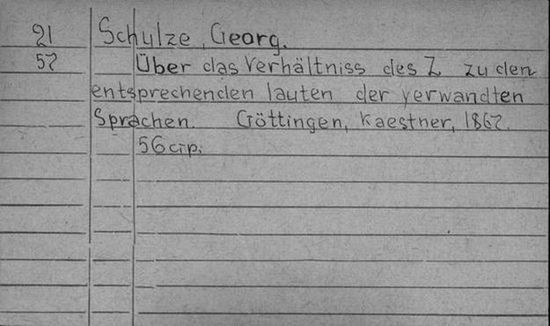 21 Schulze, Georg.
57 Über das Verhältniss des Z zu den
entsprechenden lauten der verwandten
Sprachen. Göttingen, Kaestner, 1867.
56 стр.